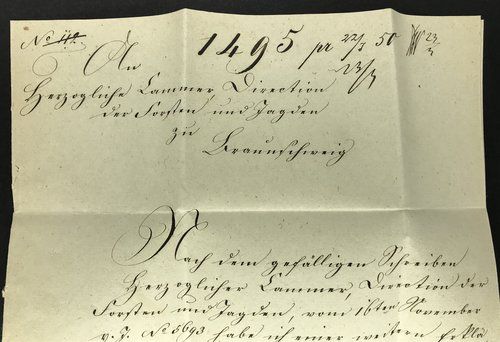 No 112.
1495 pr 22/3 50
23/3
23/3
An
Herzogliche Cammer, Direction
der Forsten und Jagden
zu
Braunschweig
Nach dem gefälligen Schreiben
Herzoglicher Cammer, Direction der
Forsten und Jagden, vom 16ten November
v. J. No 5693 habe ich einer weitern Erklä